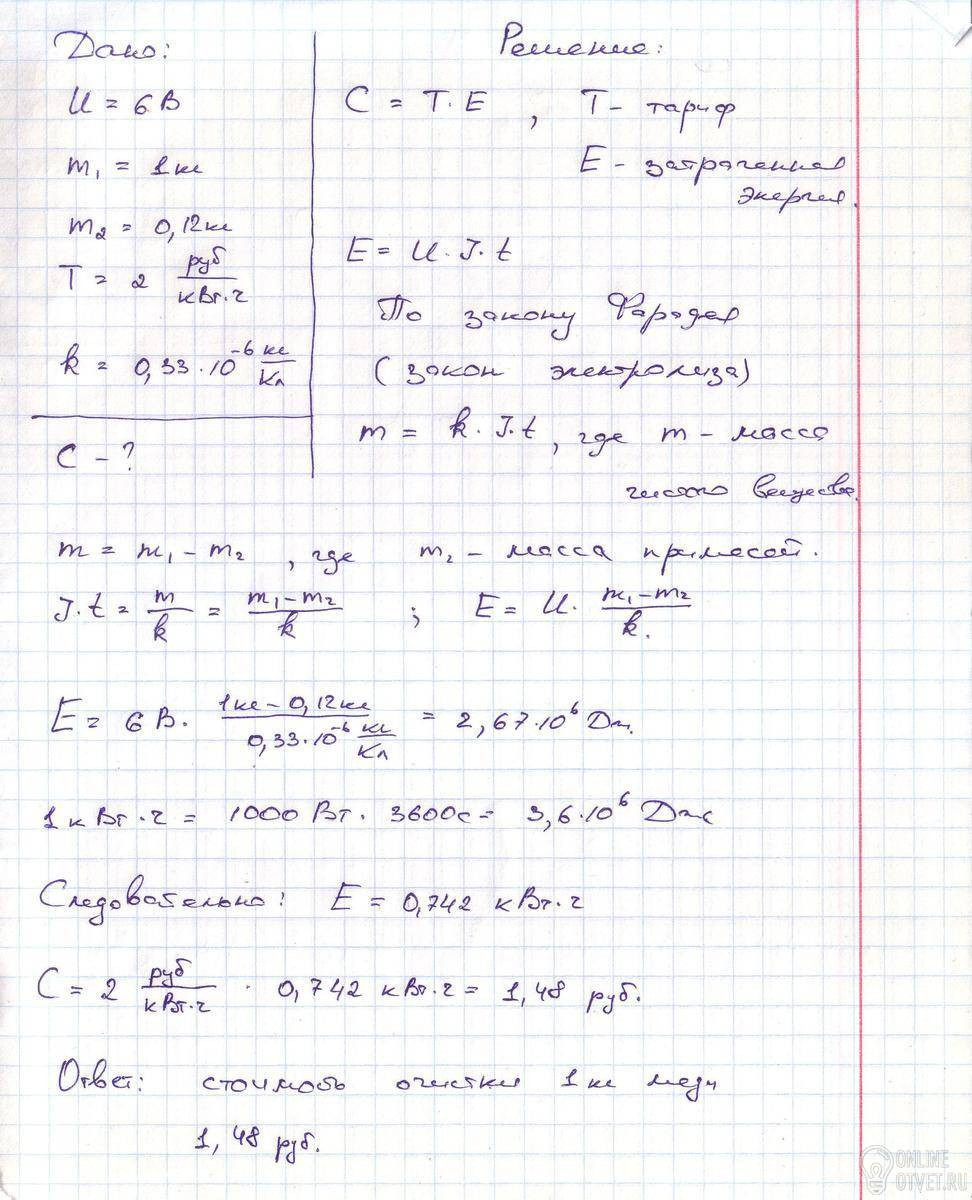 Дано:
U = 6 В
m₁ = 1 кг
m₂ = 0,12 кг
T = 2 руб/кВт·ч
k = 0,33·10⁻⁶ кг/Кл
C - ?
Решение:
C = T·E , T - тариф
E - затраченная
энергия.
E = U·J·t
По закону Фарадея
(закон электролиза)
m = k·J·t, где m - масса
чистого вещества.
m = m₁ - m₂ , где m₂ - масса примесей.
J·t = m/k = (m₁-m₂)/k ; E = U· (m₁-m₂)/k.
E = 6 В· (1кг - 0,12кг)/(0,33·10⁻⁶ кг/Кл) = 2,67·10⁶ Дж.
1 кВт·ч = 1000 Вт · 3600с = 3,6·10⁶ Дж
Следовательно: E = 0,742 кВт·ч
C = 2 руб/кВт·ч · 0,742 кВт·ч = 1,48 руб.
Ответ: стоимость очистки 1 кг меди
1,48 руб.
ONLINE
OTVET.RU